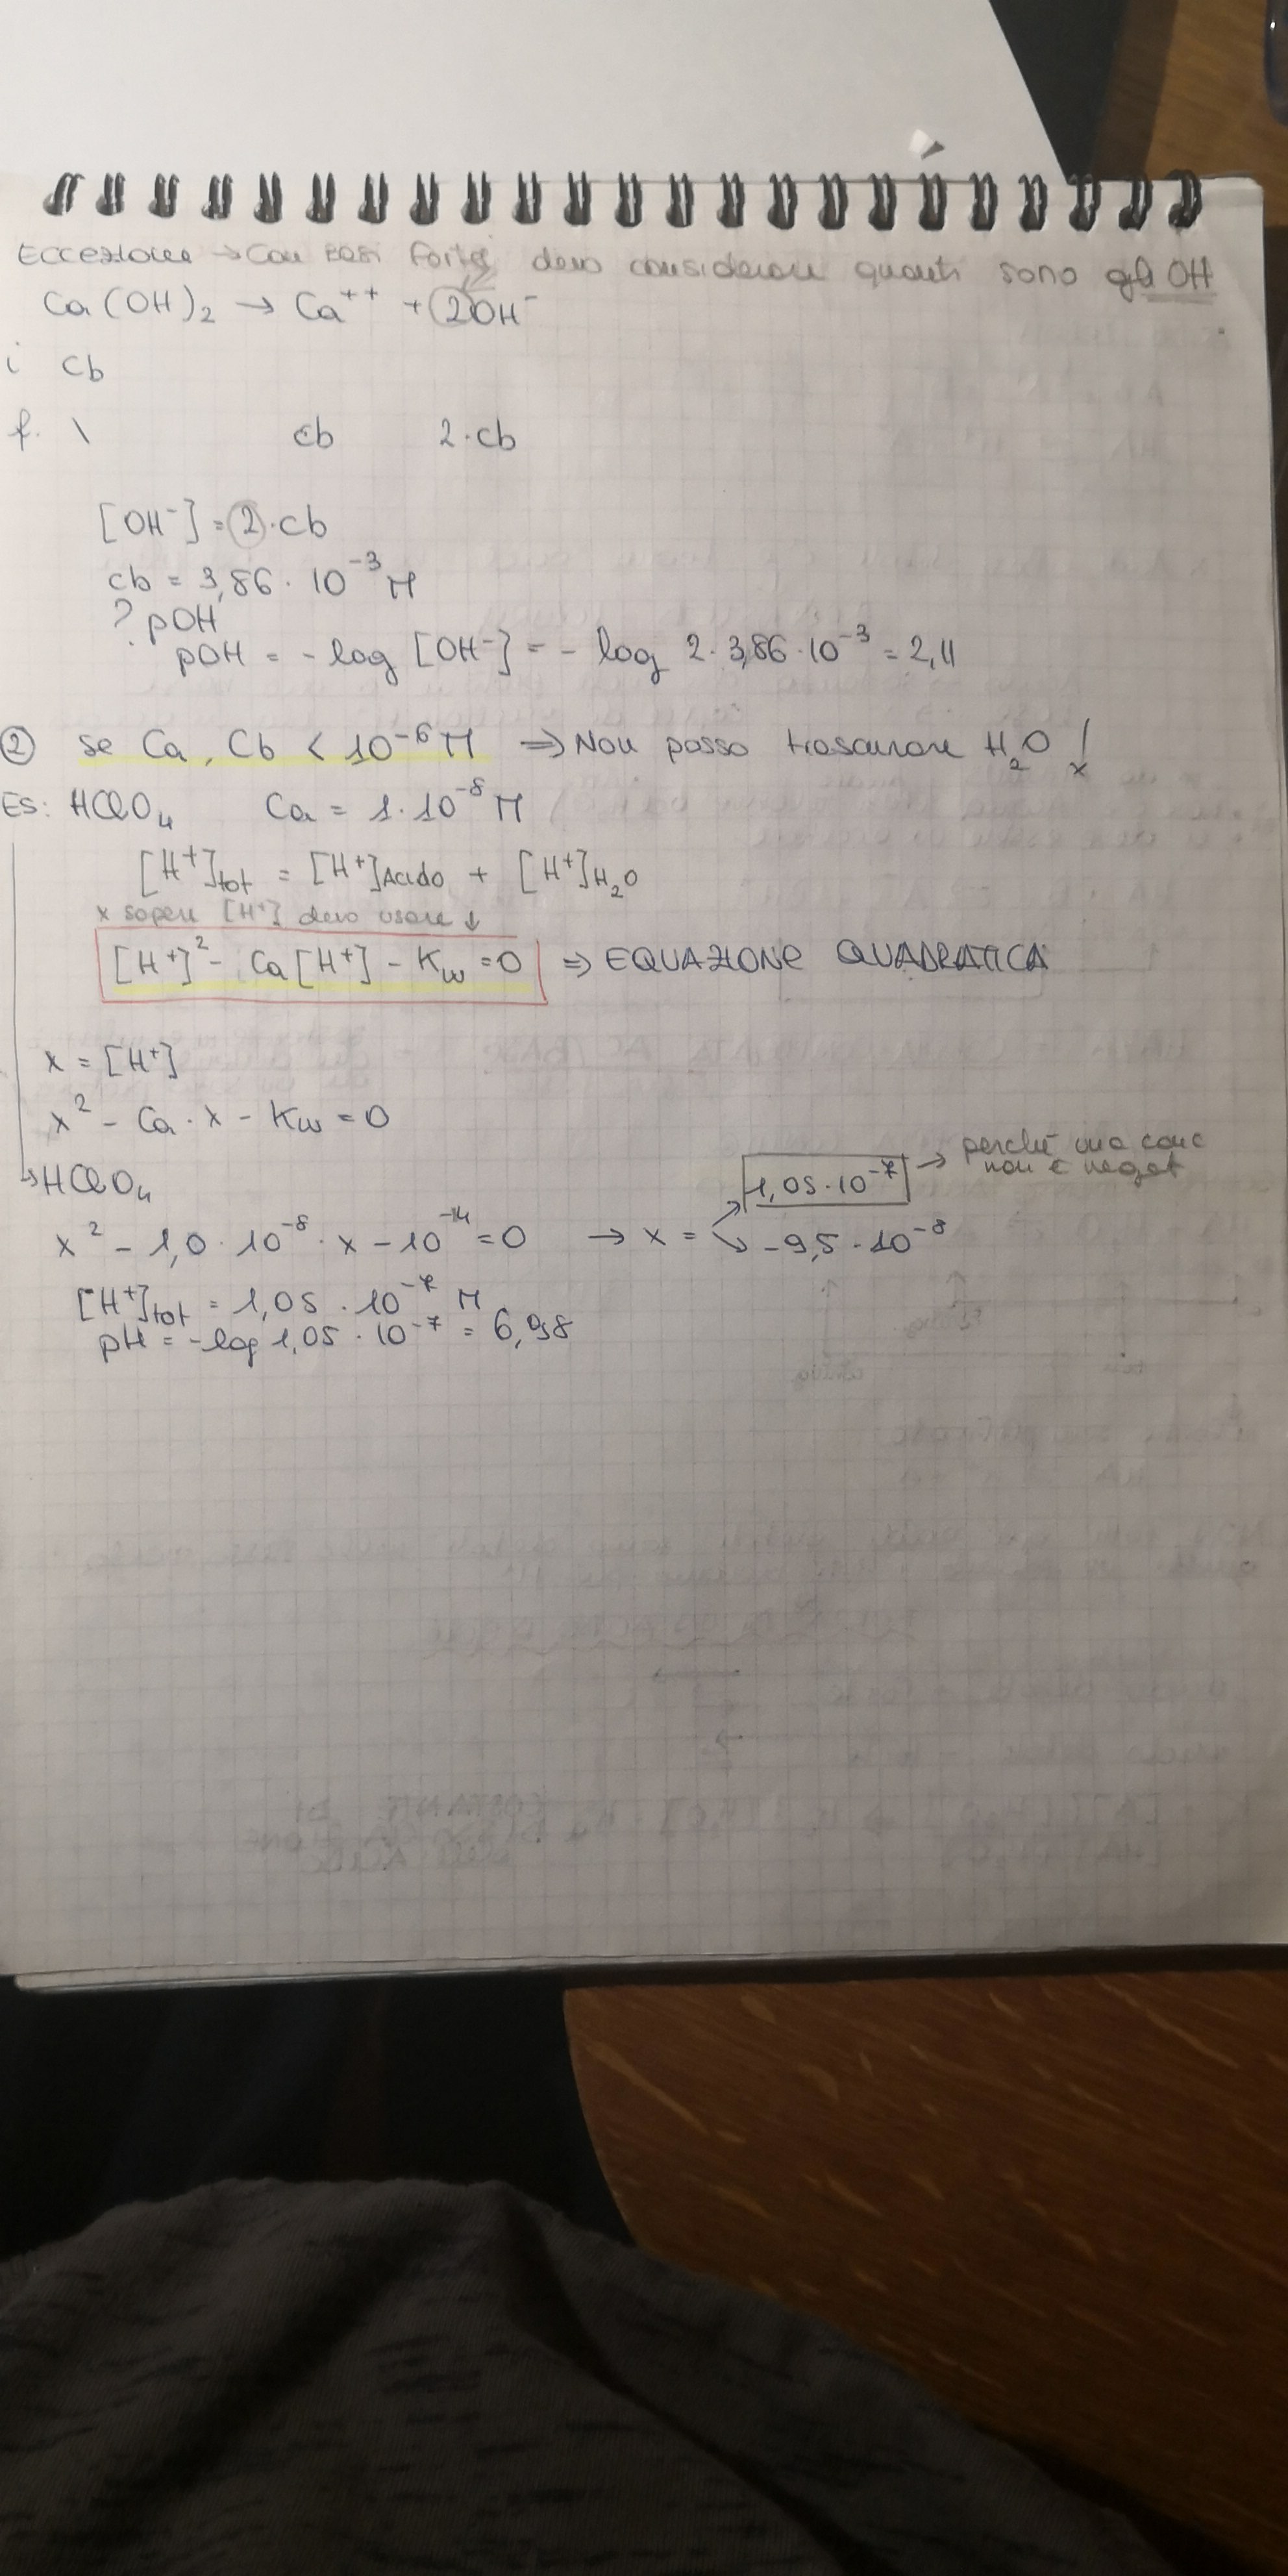 Eccezione → Con basi forti devo considerare quanti sono gli OH
Ca(OH)₂ → Ca⁺⁺ + 2OH⁻
i Cb
f. \ cb 2·cb
[OH⁻] = 2·cb
cb = 3,86·10⁻³ M
? pOH
pOH = -log [OH⁻] = - log 2·3,86·10⁻³ = 2,11
② se Ca, Cb < 10⁻⁶ M ⇒ Non posso trascurare H₂O !
ES: HClO₄ Ca = 1·10⁻⁸ M
[H⁺]tot = [H⁺]Acido + [H⁺]H₂O
x sapere [H⁺] devo usare ↓
[H⁺]² - Ca[H⁺] - Kw = 0 ⇒ EQUAZIONE QUADRATICA
x = [H⁺]
x² - Ca·x - Kw = 0
↳ HClO₄
x² - 1,0·10⁻⁸·x - 10⁻¹⁴ = 0 → x =
1,05·10⁻⁷ → perché una conc
non è negat
-9,5·10⁻⁸
[H⁺]tot = 1,05·10⁻⁷ M
pH = -log 1,05·10⁻⁷ = 6,98